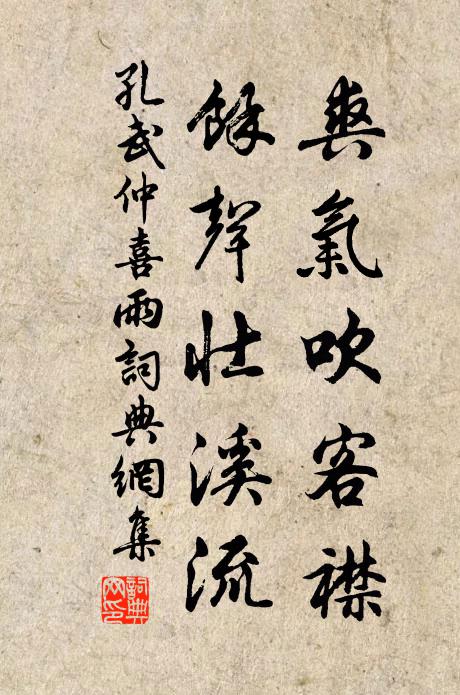 爽氣吹客襟
餘聲壯溪流
孔武仲喜雨詞典網集
詞典網印